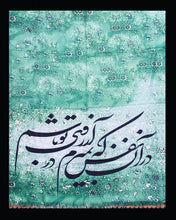 در آن نفس که بمیرم در آرزوی تو باشم